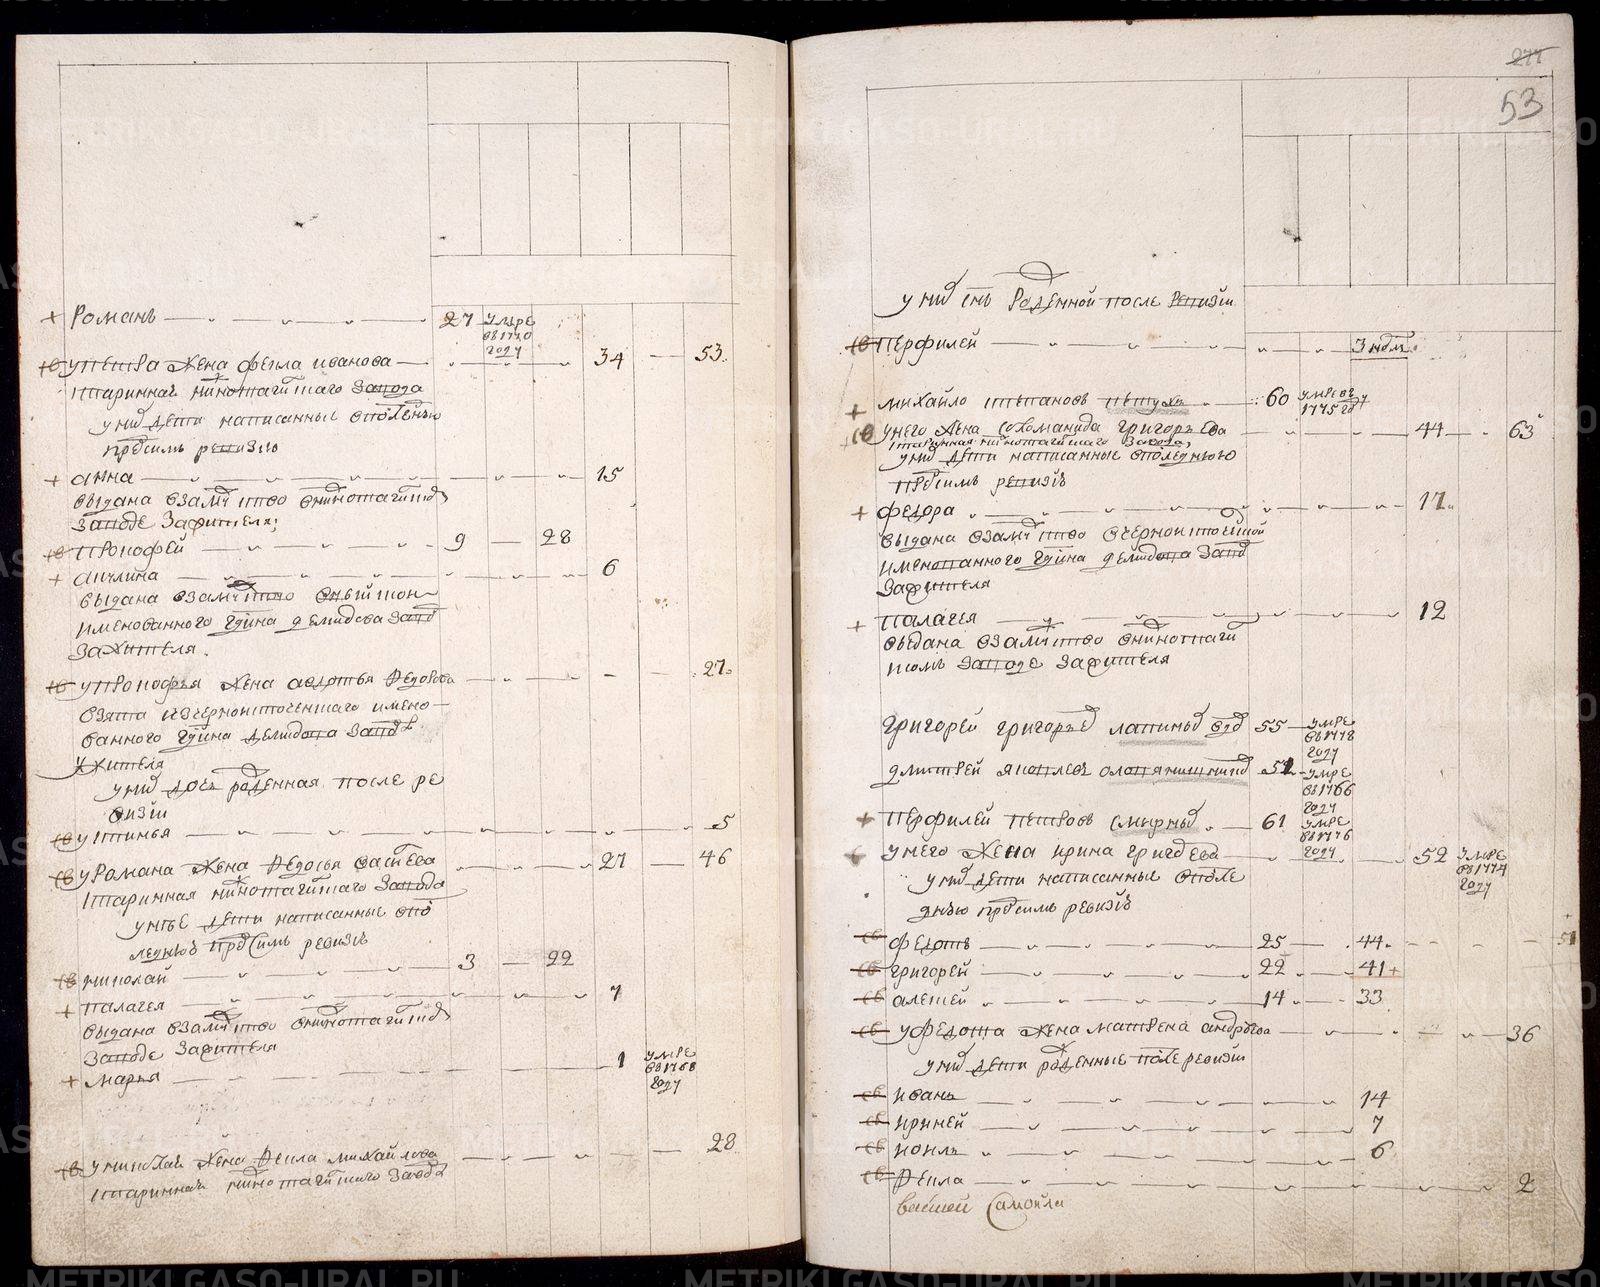 Романъ 27 умре
въ 1770
году
у Петра жена Фекла Иванова 34 53
старинная нижнотагилскаго завода
у них дети написанные в последнюю
пред сим ревизию
Анна 15
выдана в замужство в нижнотагилской
заводе за жителя
Прокофей 9 28
Акилина 6
выдана в замужство
именованного гдина Демидова завод
за жителя
у Прокофья жена Авдотья Федорова 27
взята из черноисточенскаго имено
ванного гдина Демидова завода
у жителя
у них дочь рожденная после ре
визии
Устинья 5
у Романа жена Федосья Васильева 27 46
старинная нижнотагилскаго завода
у нее дети написанные в по
следнюю пред сим ревизию
Николай 3 22
Палагея 7
выдана в замужство в нижнотагилской
заводе за жителя
Марья 1 умре
въ 1768
году
у Николая жена Фекла Михайлова 28
старинная нижнотагилскаго завода
277
53
у них сын рожденной после ревизии
Перфилей 3 нед
Михайло Степановъ Петухов 60 умре въ
1775 году
у него жена Соломанида Григорьева 44 63
старинная нижнотагилскаго завода
у них дети написанные в последнюю
пред сим ревизию
Федора 17
выдана в замужство в черноисточенской
именованного гдина Демидова завод
за жителя
Палагея 12
выдана в замужство в нижнотаги
лском заводе за жителя
Григорей Григорьев Лапиных 55 умре
въ 1778
году
Дмитрей Яковлевъ 52 умре
въ 1766
году
Перфилей Петровъ Смирных 61 умре
въ 1776
году
у него жена Ирина Григорьева 52 умре
въ 1774
году
у них дети написанные в после
днюю пред сим ревизию
Федотъ 25 44
51
Григорей 22 41
Алексей 14 33
у Федота жена Матрена Андреева 36
у них дети рожденные после ревизии
Иванъ 14
Ириней 7
Иоилъ 6
Фекла 2
Самойла
METRIKI.GASO-URAL.RU